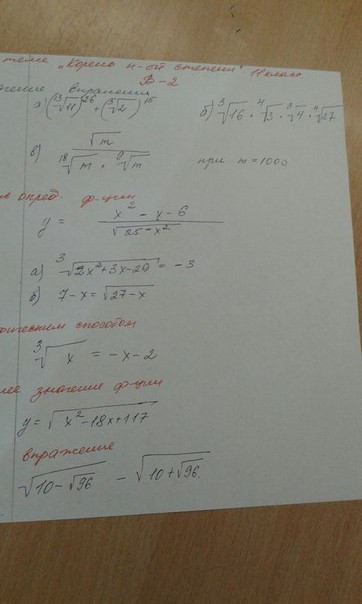 теме "Корень n-ой степени" 11 класс
В-2
выражения
а) (¹³√11)²⁶ + (³√2)¹⁵ б) ³√16 · ⁴√3 · ³√4 · ⁴√27
в) √m / (¹⁸√m · ⁹√m) при m = 1000
опред. ф-ции
y = (x² - x - 6) / √(25 - x²)
а) ³√(2x² + 3x - 29) = -3
б) 7 - x = √(27 - x)
способом
³√x = -x - 2
значение ф-ции
y = √(x² - 18x + 117)
выражение
√(10 - √96) - √(10 + √96)